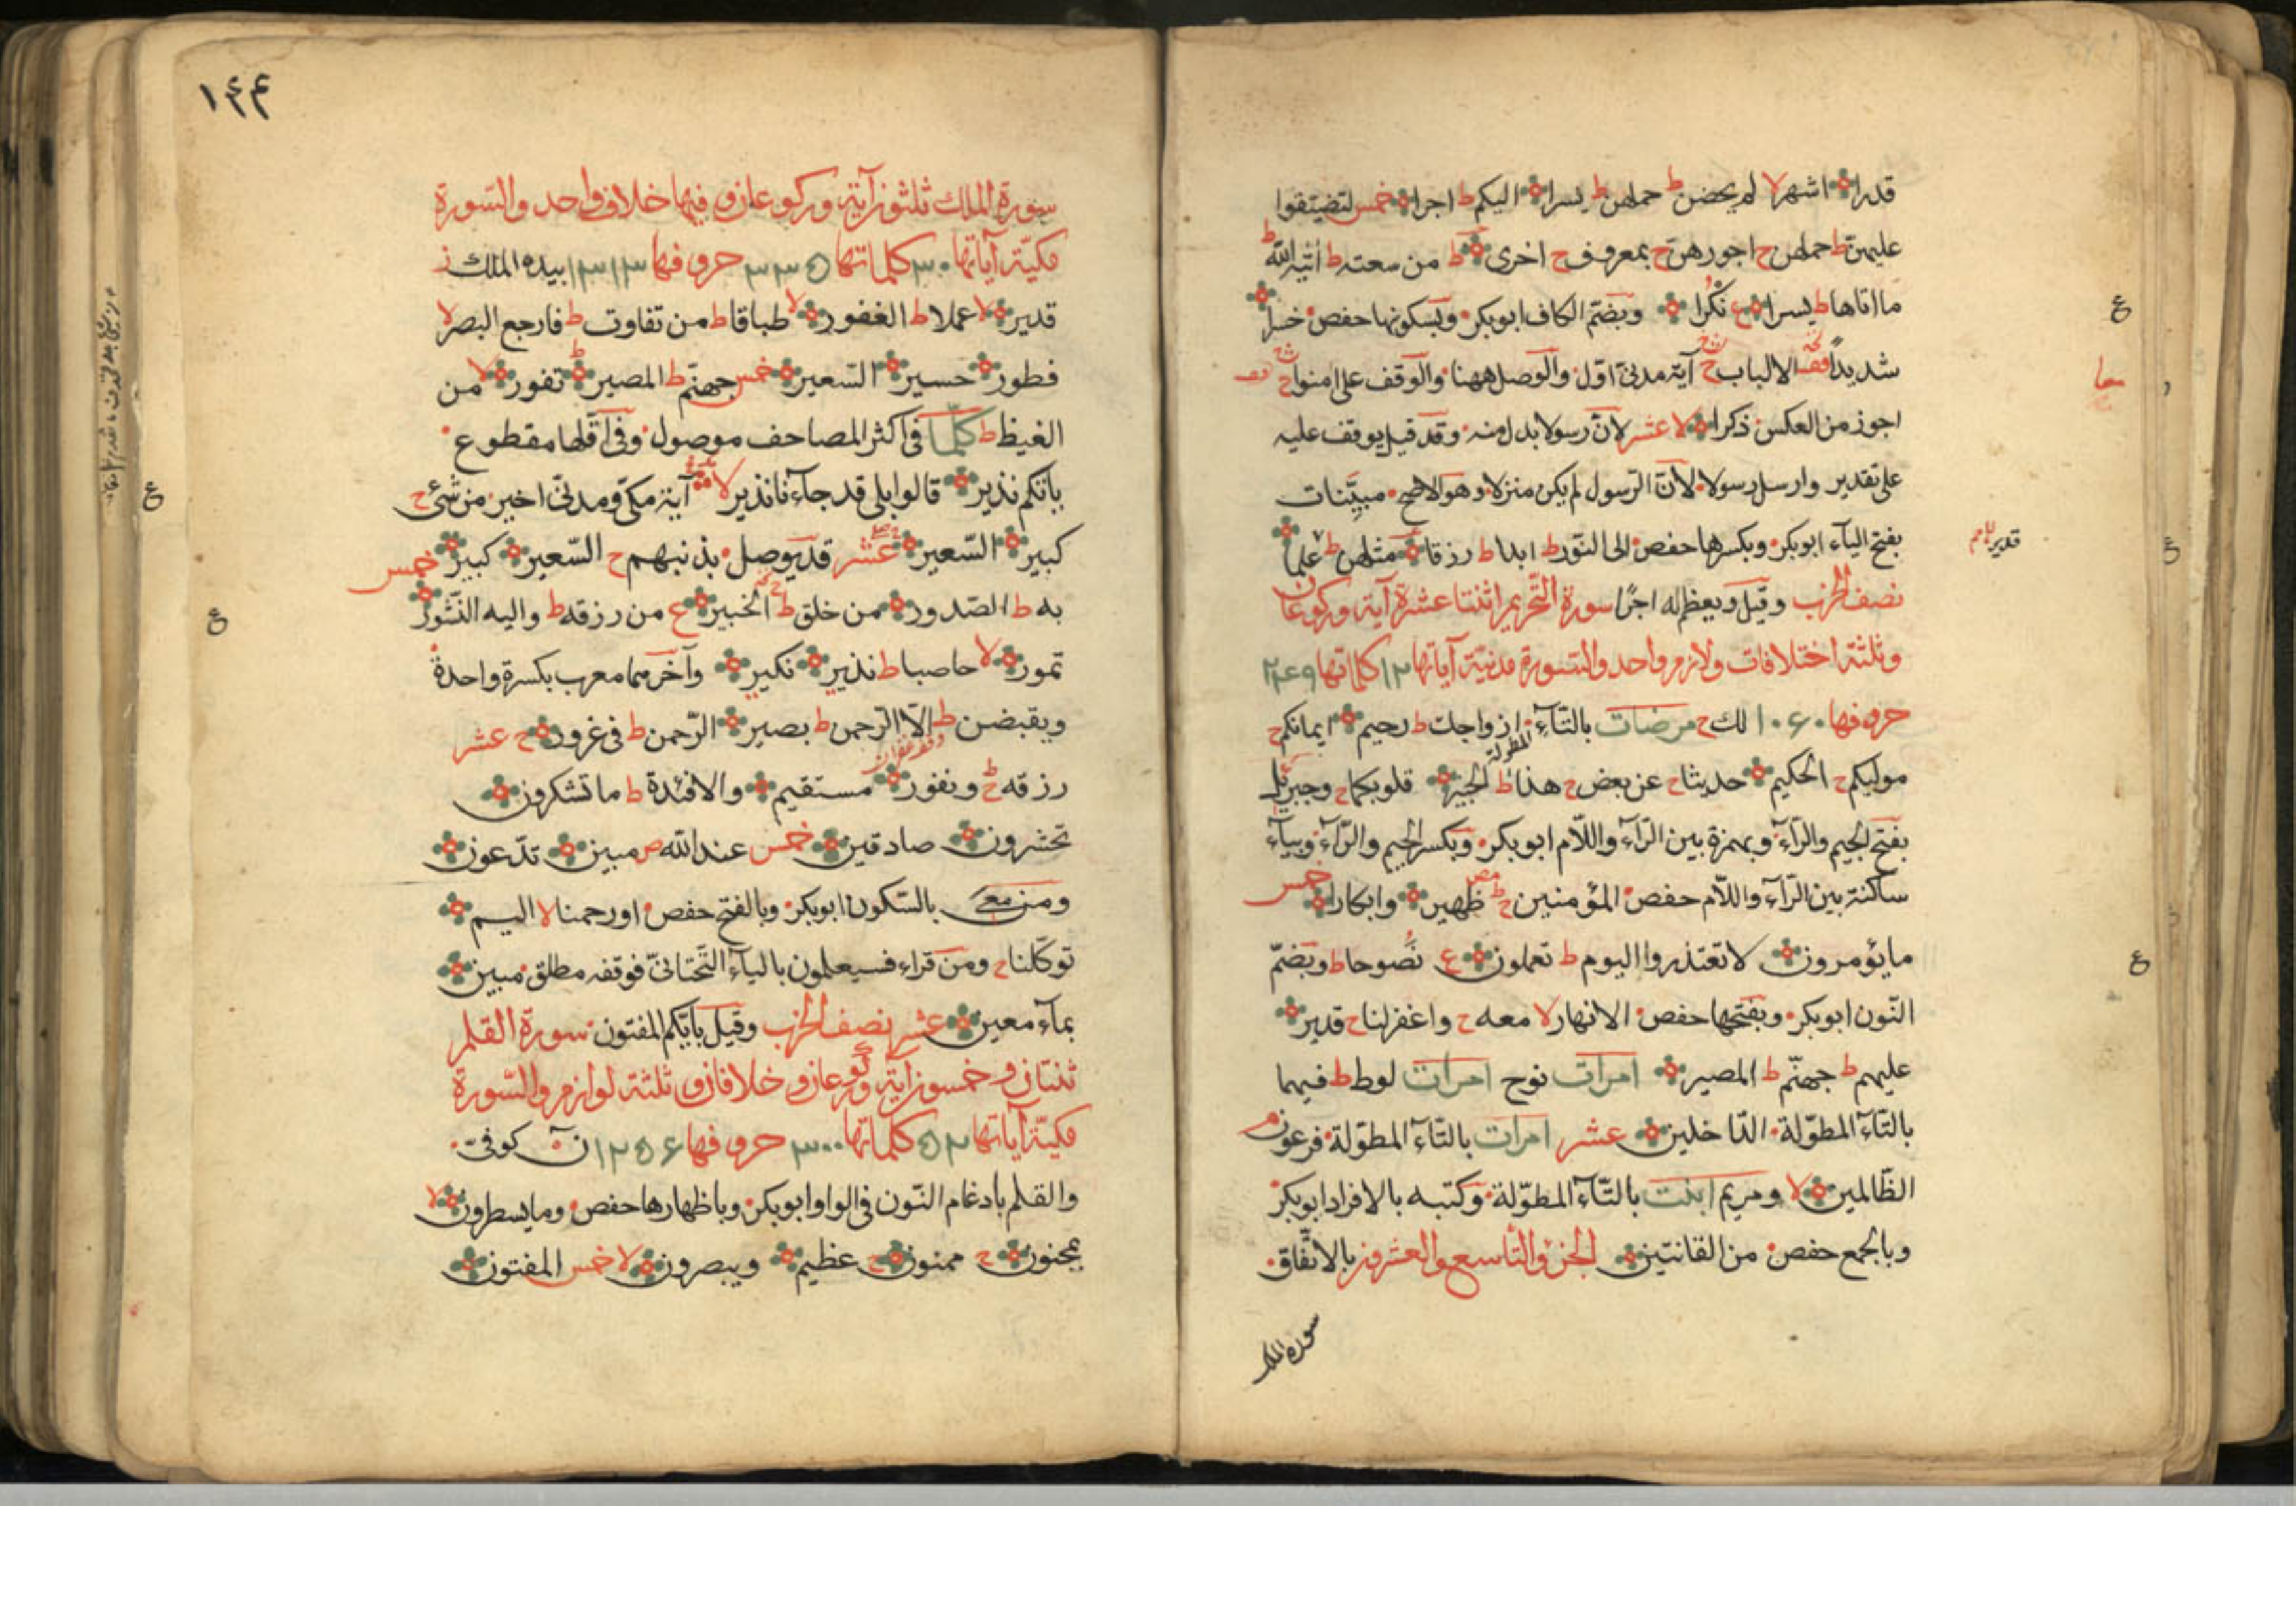 قدرا اشهر لا لم يحضن ط حملهن ط يسرا اليكم ط اجرا خمس لتضيقوا
عليهن ط حملهن ح اجورهن ح بمعروف ح اخرى ط من سعته ط اتيه الله ط
ما اتاها ط يسرا ع نُكُرا وبضم الكاف ابو بكر وبسكونها حفص خسرا
شديداً فقه الالباب ح آية مدنى اول والوصل ههنا والوقف على امنوا ح
اجوز من العكس ذكرا لا عشر لان رسولا بدل منه وقد قيل يوقف عليه
على تقدير وارسل رسولا لان الرسول لم يكن منزلا وهو الاصح مبيّنات
بفتح الياء ابو بكر وبكسرها حفص الى النور ط ابدا ط رزقا مثلهن ط علما
قدير
نصف الحزب وقيل ويعظم له اجرًا سورة التحريم اثنتا عشرة آية وركوعان
وثلثة اختلافات ولازم واحد والسورة مدنية آياتها ١٢ كلماتها ٢٤٩
حروفها ١٠٦٠ لك ح مرضات بالتاء المطولة ازواجك ط رحيم ايمانكم ح
موليكم ح الحكيم حديثا ح عن بعض ح هذا ط الخبير قلوبكما ح وجبرئل
بفتح الجيم والراء وبهمزة بين الراء واللام ابو بكر وبكسر الجيم والراء وبياء
ساكنة بين الراء واللام حفص المؤمنين ح ظهير وابكارا خمس
ما يؤمرون لا تعتذروا اليوم ط تعملون ع نُصوحا ط وبضم
النون ابو بكر وبفتحها حفص الانهار لا معه ح واغفر لنا ح قدير
عليهم ط جهنم ط المصير امرات نوح امرات لوط ط فيهما
بالتاء المطولة الداخلين عشر امرات بالتاء المطولة فرعون م
الظالمين لا ومريم ابنت بالتاء المطولة وكتبه بالافراد ابو بكر
وبالجمع حفص من القانتين الجزء التاسع والعشرون بالاتفاق
سورة الملك
١٤٤
سورة الملك ثلثون آية وركوعان وفيها خلاف واحد والسورة
مكية آياتها ٣٠ كلماتها ٣٣٥ حروفها ١٣١٣ بيده الملك ز
قدير لا عملا ط الغفور لا طباقا ط من تفاوت ط فارجع البصر لا
فطور حسير السعير خمس جهنم ط المصير ط تفور لا من
الغيظ ط كلّما فى اكثر المصاحف موصول وفى اقلها مقطوع
ياتكم نذير قالوا بلى قد جاءنا نذير لا آية مكى ومدنى اخير من شئ ح
كبير السعير عشر قد يوصل بذنبهم ح السعير كبير خمس
به ط الصدور من خلق ط الخبير ع من رزقه ط واليه النشور
تمور لا حاصبا ط نذير نكير وآخرهما معرب بكسرة واحدة
ويقبضن ط الا الرحمن ط بصير الرحمن ط فى غرور ح عشر
رزقه ح ونفور مستقيم والافئدة ط ما تشكرون
تحشرون صادقين خمس عند الله ص مبين تدعون
ومن معى بالسكون ابو بكر وبالفتح حفص اورحمنا لا اليم
توكلنا ح ومن قراء فسيعلمون بالياء التحتانى فوقفه مطلق مبين
بماء معين عشر نصف الحزب وقيل بايكم المفتون سورة القلم
ثنتان وخمسون آية وركوعان وخلافان وثلثة لوازم والسورة
مكية آياتها ٥٢ كلماتها ٣٠٠ حروفها ١٢٥٦ ن كوفى
والقلم بادغام النون فى الواو ابو بكر وباظهارها حفص وما يسطرون لا
بمجنون ح ممنون ح عظيم ويبصرون لا خمس المفتون